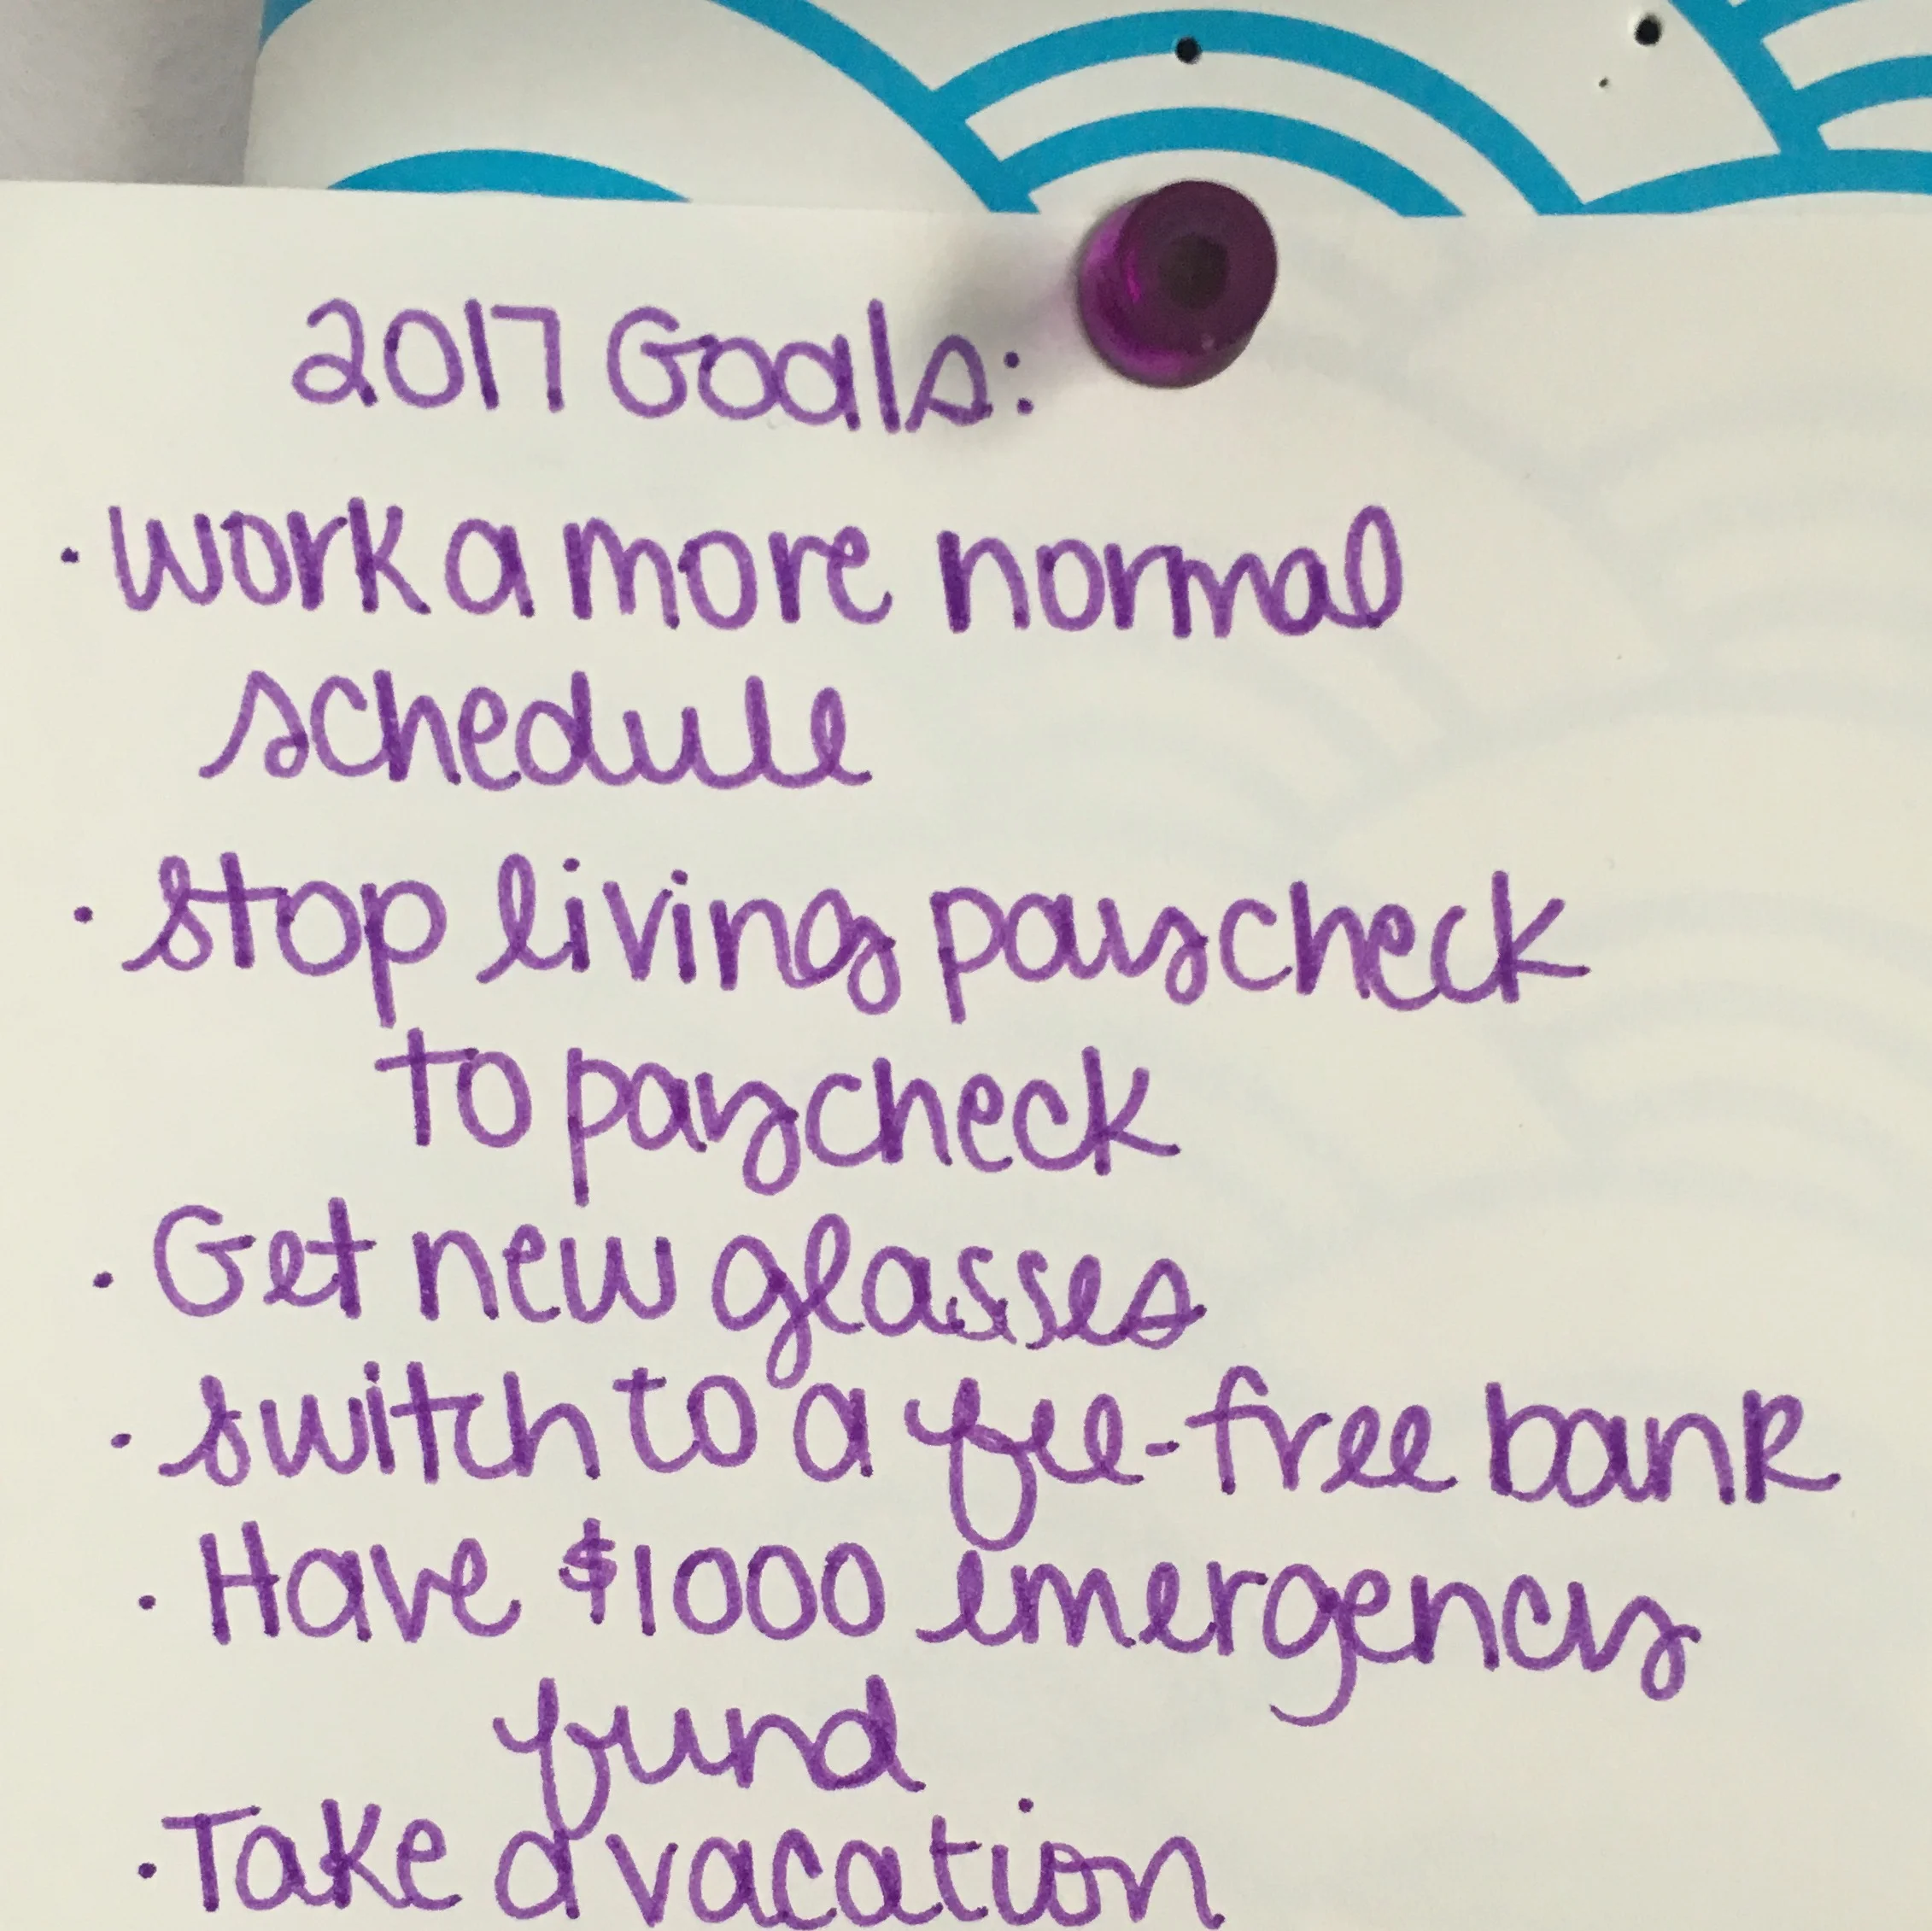 2017 Goals:
· Work a more normal
schedule
· Stop living paycheck
to paycheck
· Get new glasses
· Switch to a fee-free bank
· Have $1000 emergency
fund
· Take a vacation